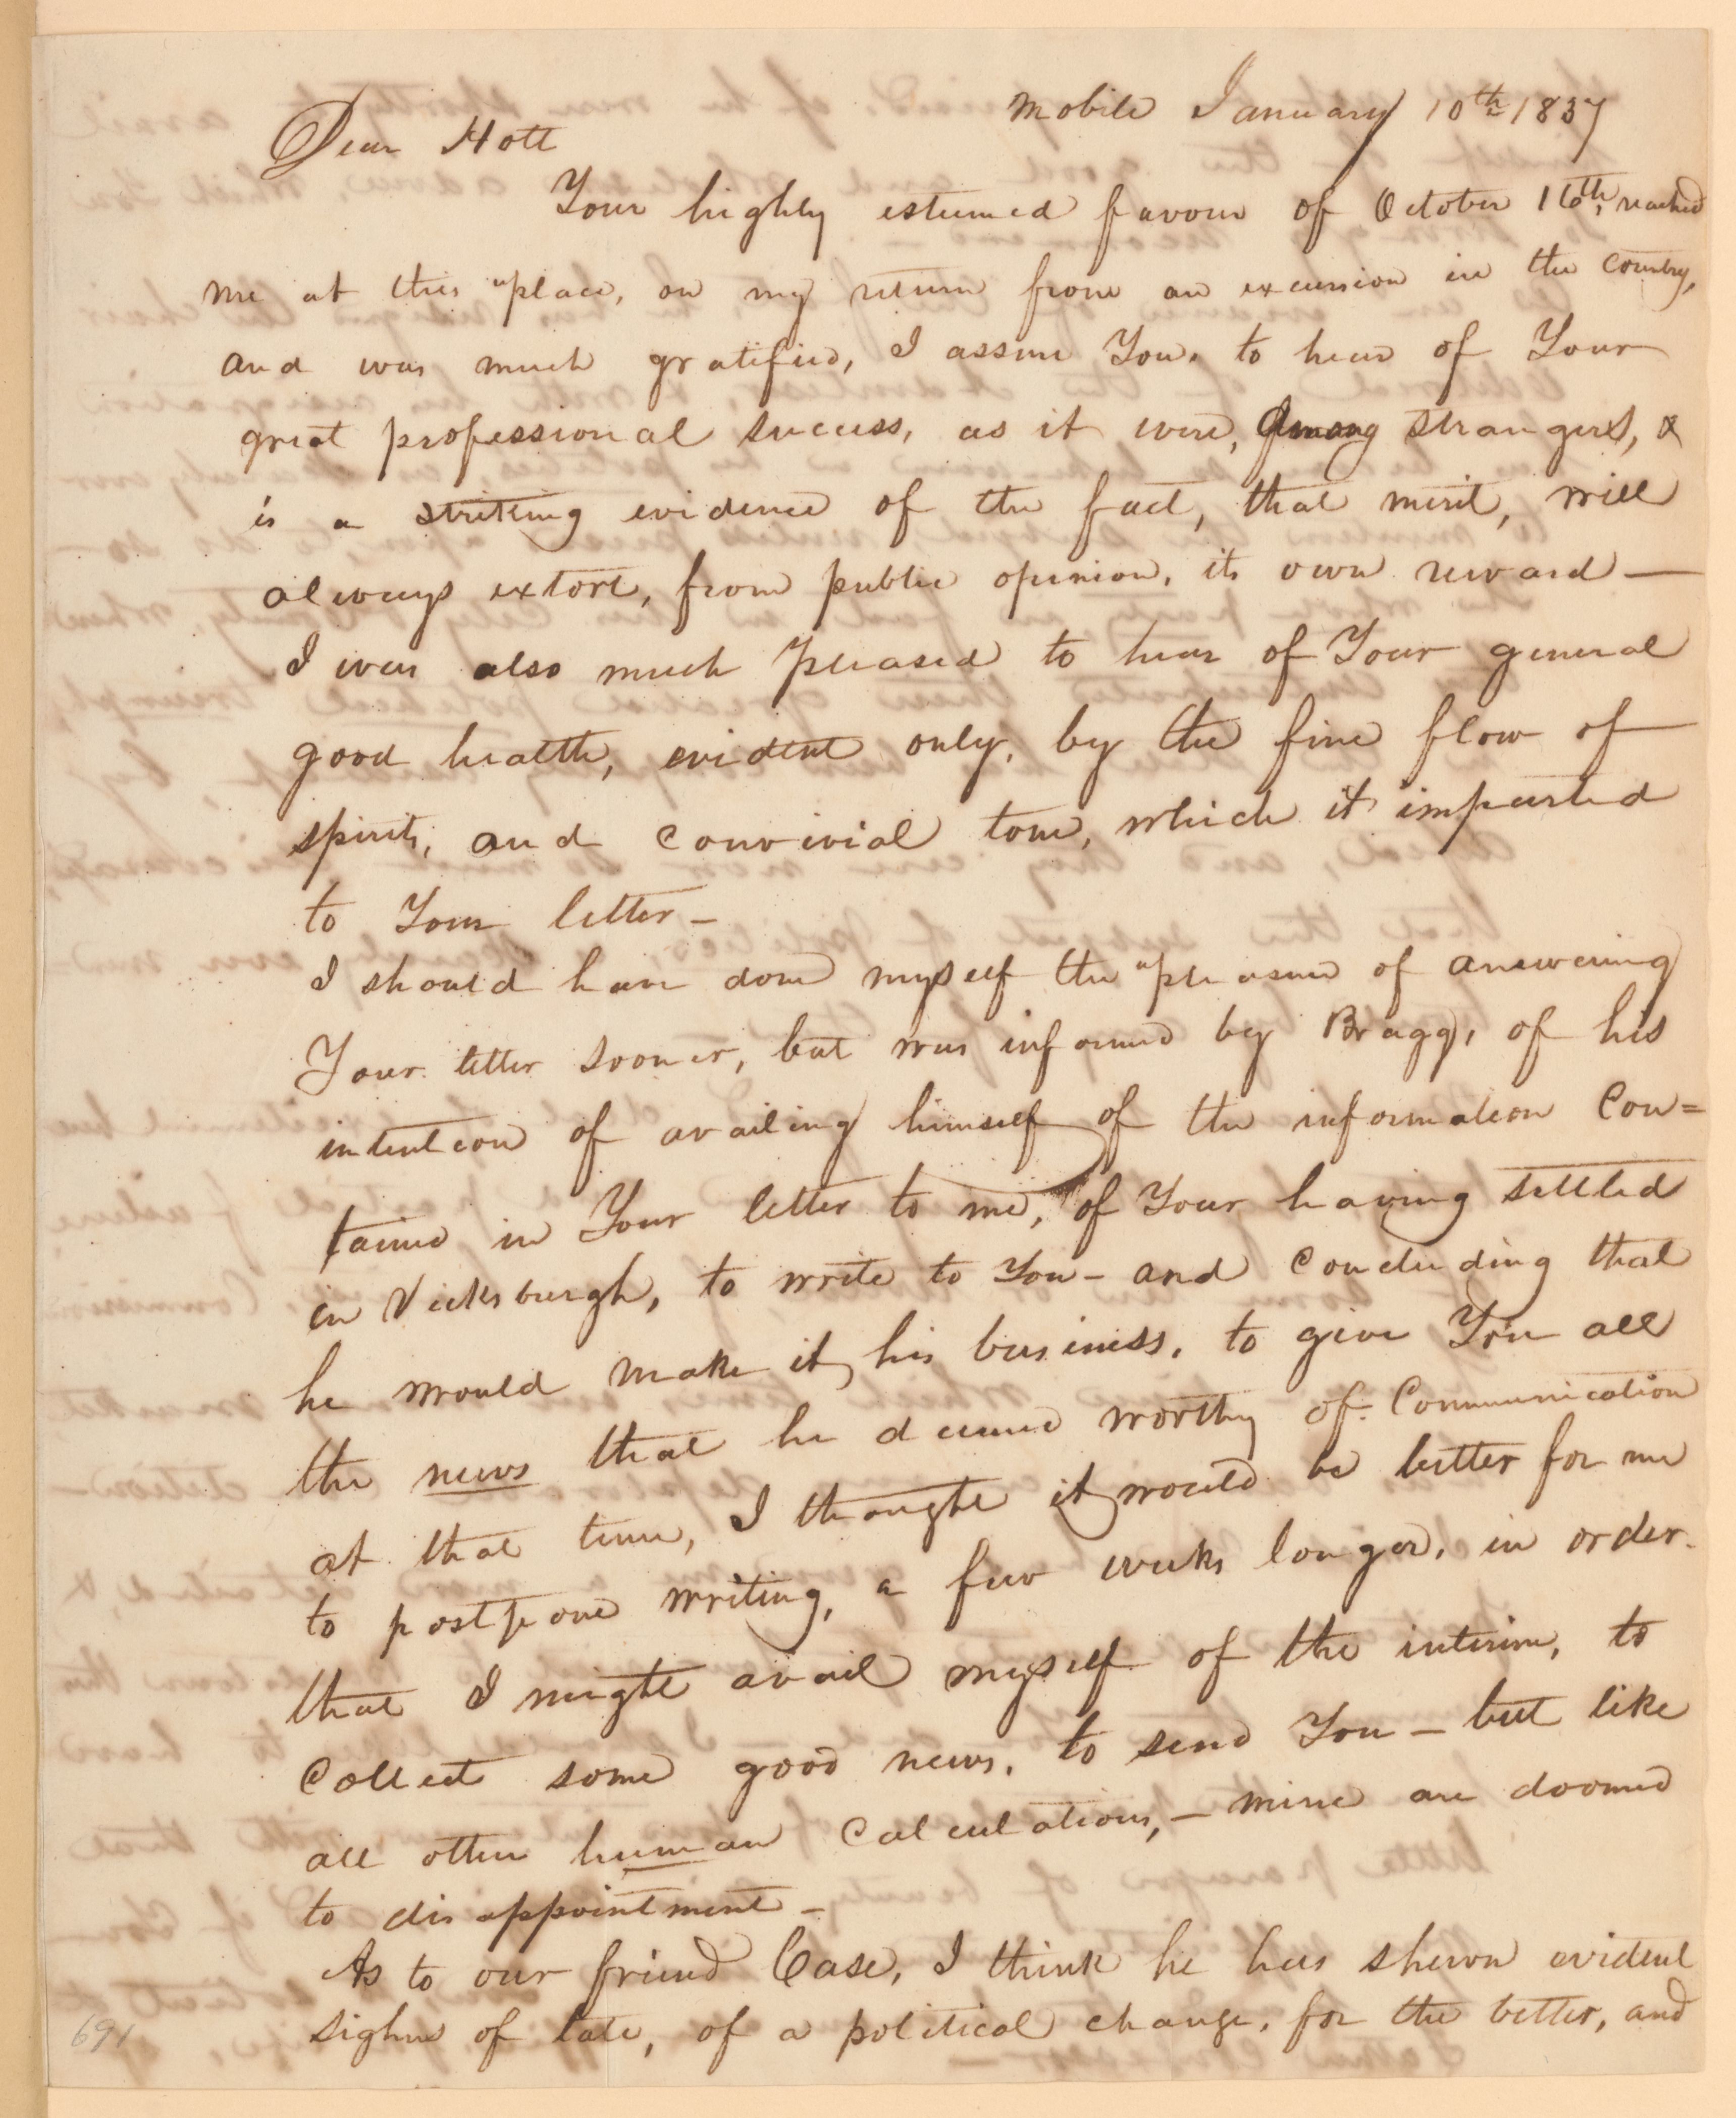 Mobile January 10th 1837
Dear Holt
Your highly esteemed favour of October 16th, reached
me at this place, on my return from an excursion in the country,
and was much gratified, I assure You, to hear of Your
great professional success, as it were, among strangers, &
is a striking evidence of the fact, that merit, will
always extort, from public opinion, its own reward —
I was also much pleased to hear of Your general
good health, evident only, by the fine flow of
spirits, and convivial tone, which it imparted
to Your letter —
I should have done myself the pleasure of answering
Your letter sooner, but was informed by Bragg, of his
intention of availing himself of the information Con=
tained in Your letter to me, of Your having settled
in Vicksburgh, to write to You — and Concluding that
he would make it, his business, to give You all
the news that he deemed worthy of Communication
at that time, I thought it would be better for me
to postpone writing, a few weeks longer, in order
that I might avail myself of the interim, to
Collect some good news, to send You — but like
all other human Calculations, — mine are doomed
to disappointment —
As to our friend Case, I think he has shewn evident
sighns of late, of a political change, for the better, and
691